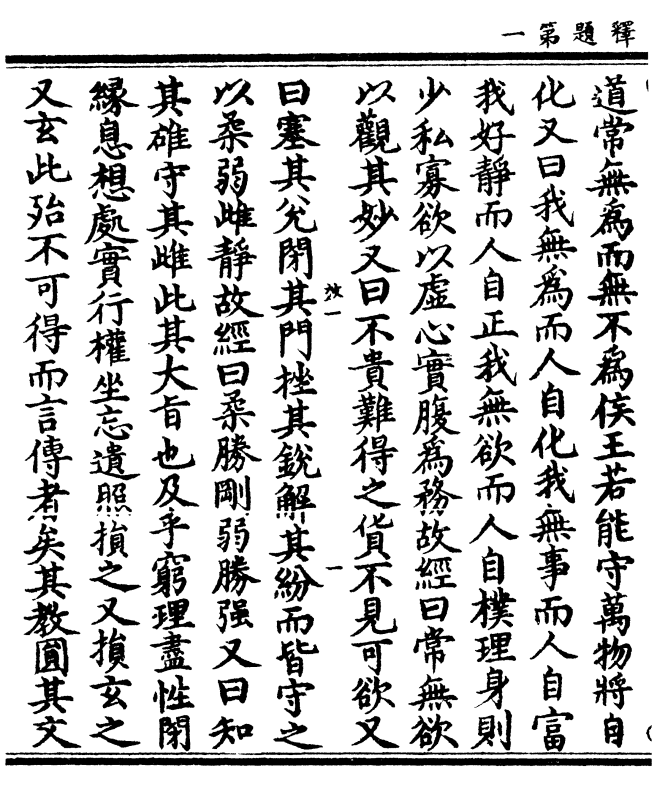 釋題第一
道常無爲而無不爲侯王若能守萬物將自
化又曰我無爲而人自化我無事而人自富
我好靜而人自正我無欲而人自樸理身則
少私寡欲以虛心實腹爲務故經曰常無欲
以觀其妙又曰不貴難得之貨不見可欲又
曰塞其兊閉其門挫其銳解其紛而皆守之
以柔弱雌靜故經曰柔勝剛弱勝强又曰知
其雄守其雌此其大旨也及乎窮理盡性閉
緣息想處實行權坐忘遺照損之又損玄之
又玄此殆不可得而言傳者矣其教圓其文